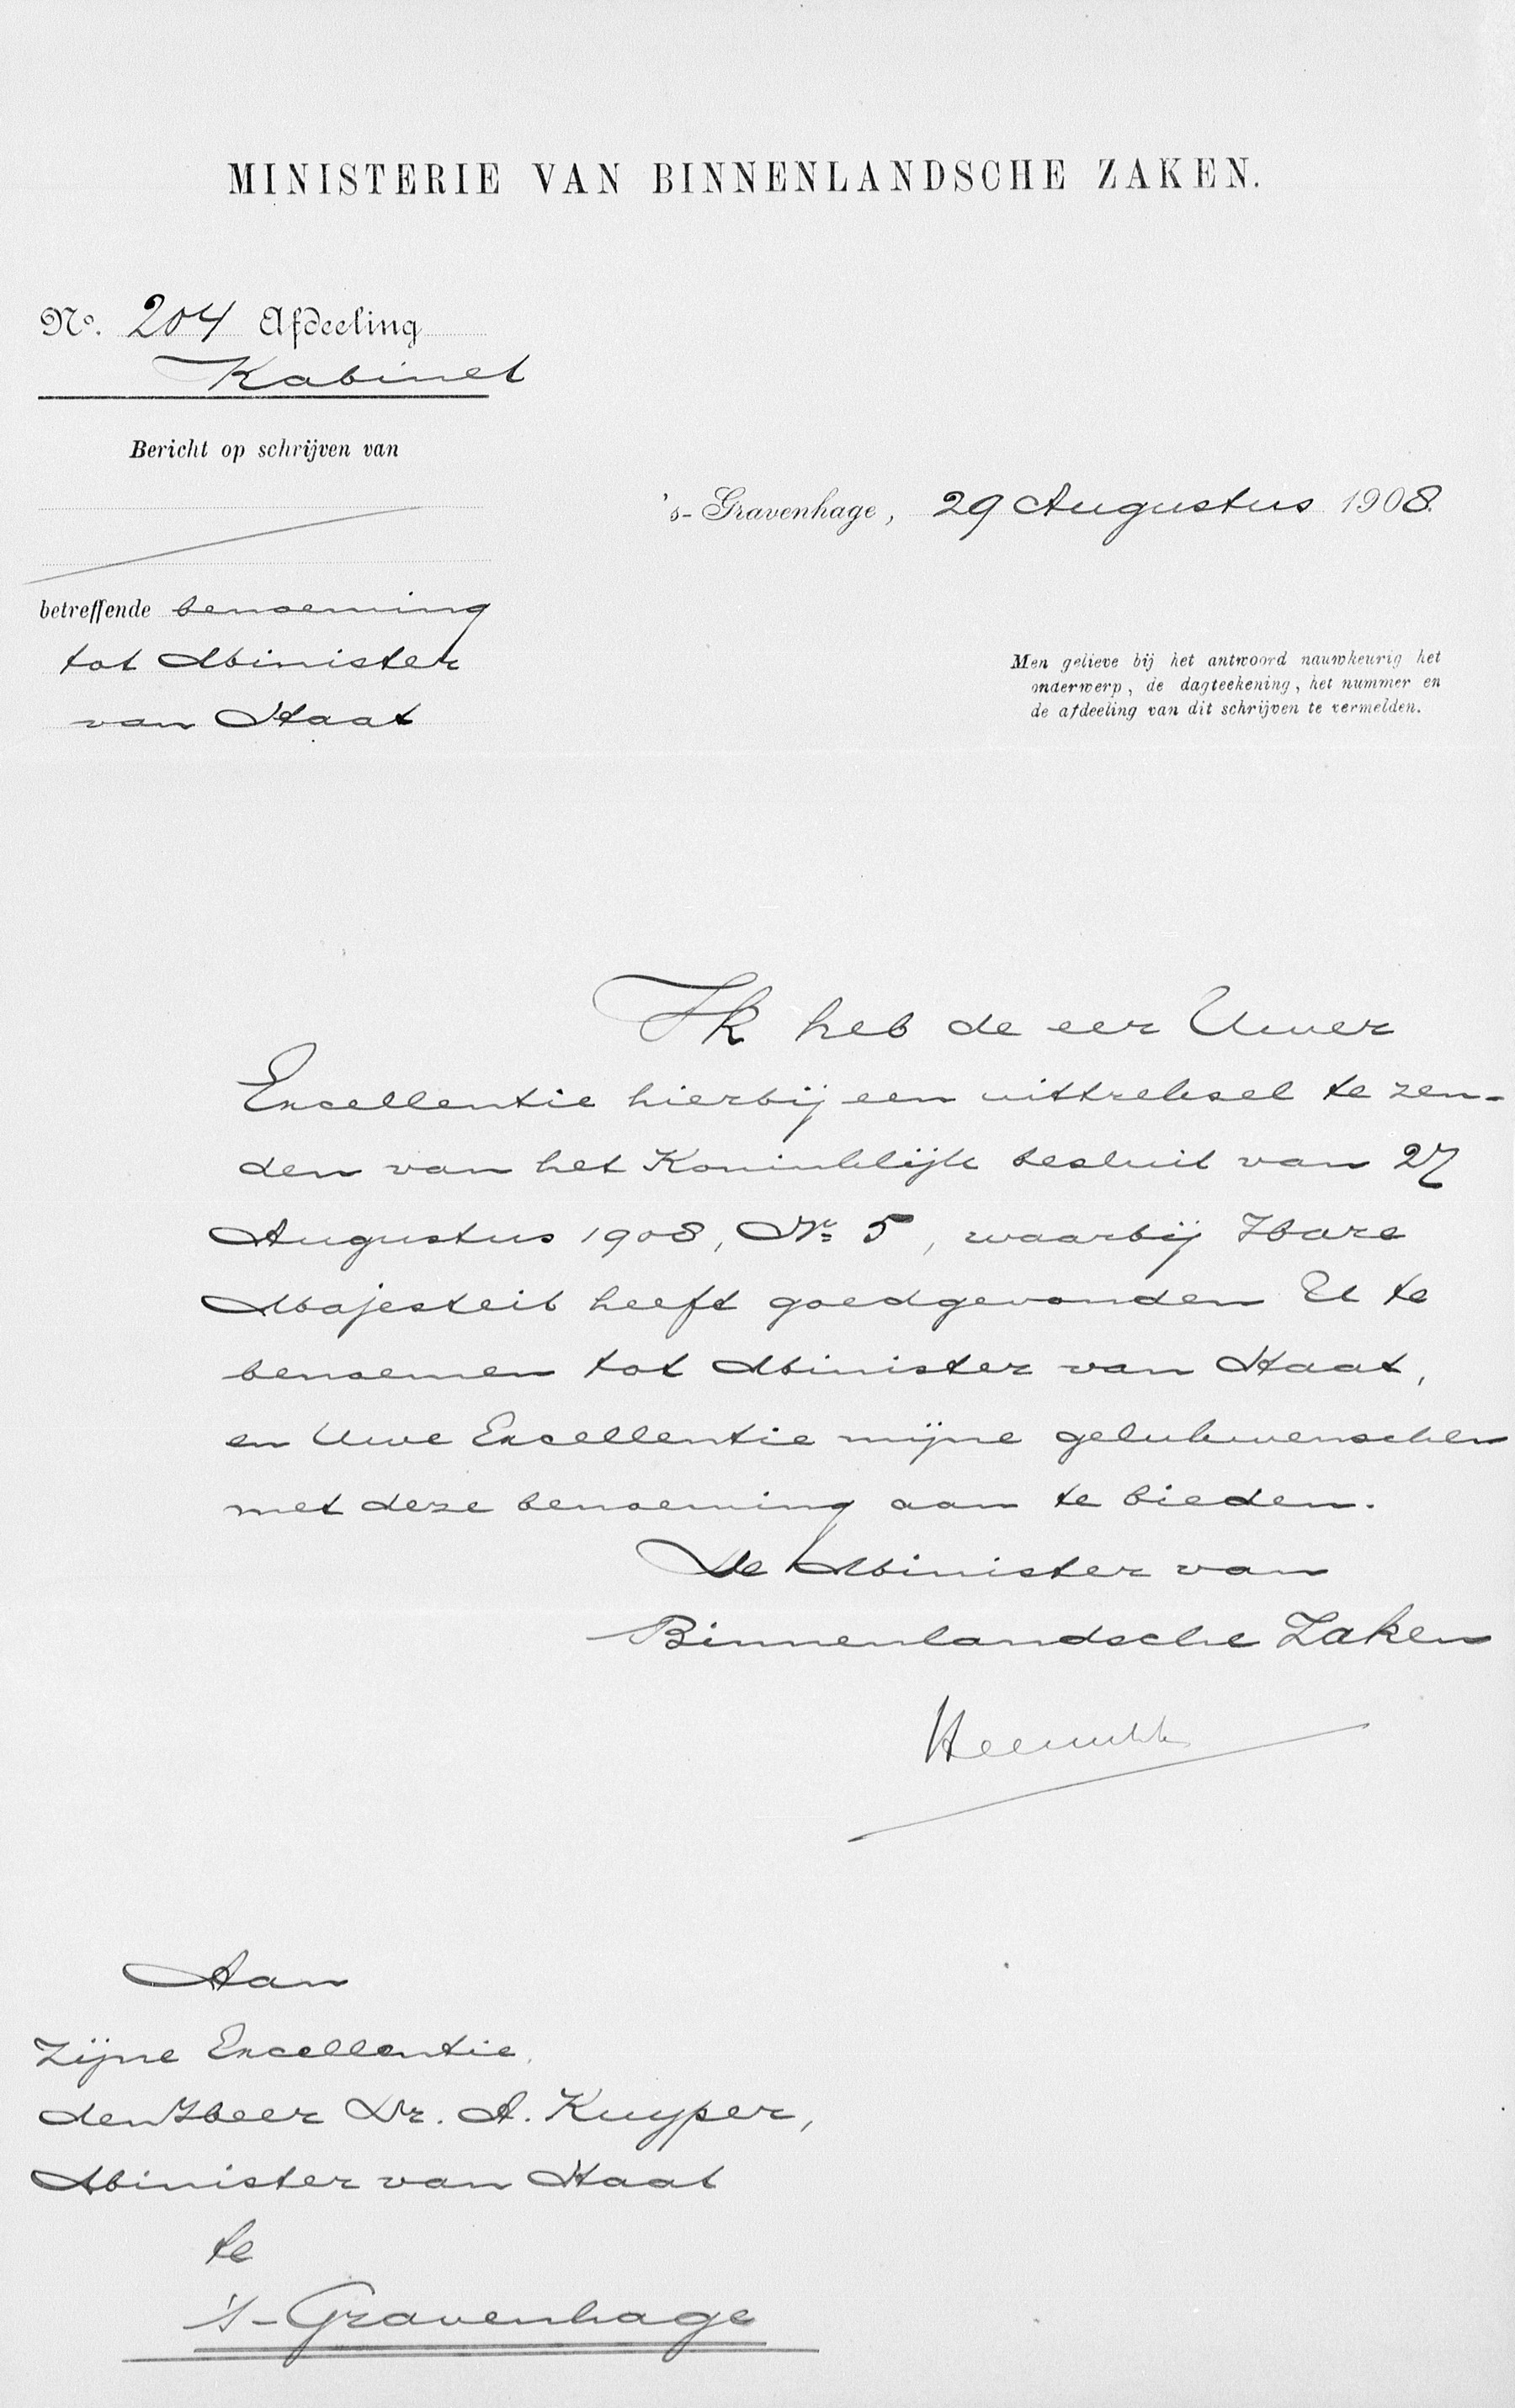 MINISTERIE VAN BINNENLANDSCHE ZAKEN.
No. 204 Afdeeling
Kabinet
Bericht op schrijven van
's-Gravenhage, 29 Augustus 1908.
betreffende benoeming
tot Minister
van Staat
Men gelieve bij het antwoord nauwkeurig het
onderwerp, de dagteekening, het nummer en
de afdeeling van dit schrijven te vermelden.
Ik heb de eer Uwer
Excellentie hierbij een uittreksel te zen-
den van het Koninklijk besluit van 27
Augustus 1908, No 5, waarbij Hare
Majesteit heeft goedgevonden U te
benoemen tot Minister van Staat,
en Uwe Excellentie mijne gelukwenschen
met deze benoeming aan te bieden.
De Minister van
Binnenlandsche Zaken
Heemskerk
Aan
Zijne Excellentie
den Heer Dr. A. Kuyper,
Minister van Staat
te
's-Gravenhage